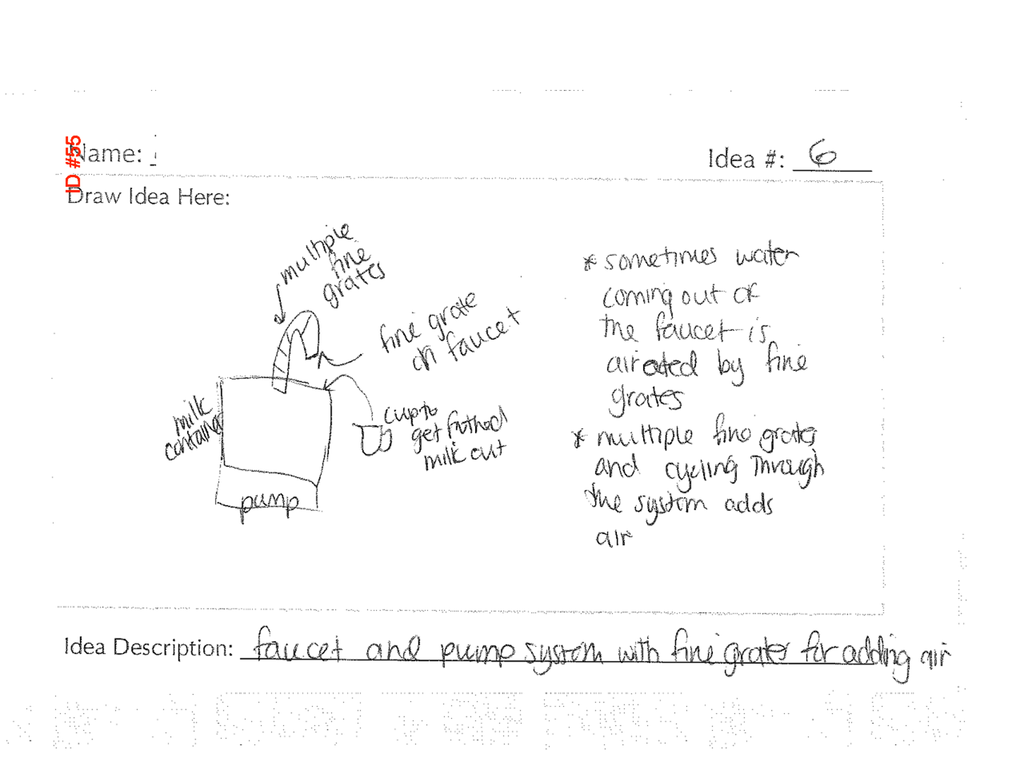 ID #55
Name:
Idea #: 6
Draw Idea Here:
multiple
fine
grates
fine grate
on faucet
milk
container
cup to
get frothed
milk out
pump
* sometimes water
coming out of
the faucet is
airated by fine
grates
* multiple fine grates
and cycling through
the system adds
air
Idea Description: faucet and pump system with fine grates for adding air